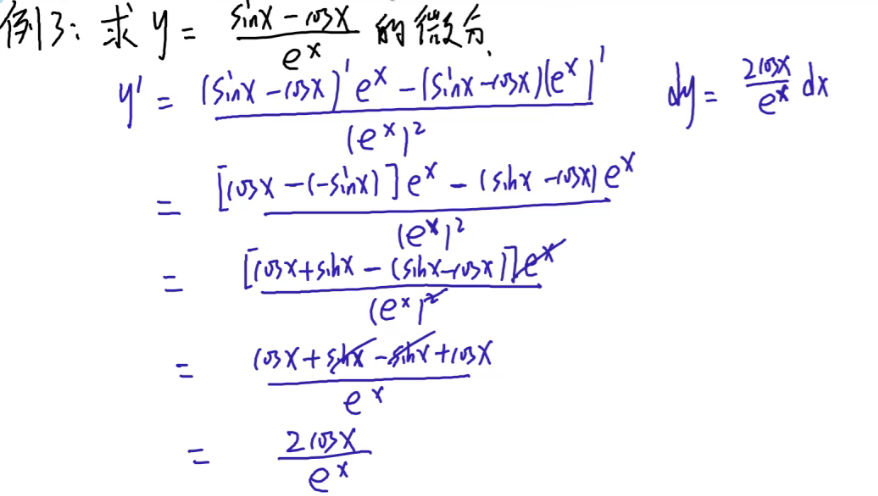 例3: 求 y = (sinx - cosx)/e^x 的微分.
y' = ((sinx - cosx)'e^x - (sinx - cosx)(e^x)')/(e^x)^2
dy = (2cosx/e^x) dx
= ([cosx - (-sinx)]e^x - (sinx - cosx)e^x)/(e^x)^2
= ([cosx + sinx - (sinx - cosx)]e^x)/(e^x)^2
= (cosx + sinx - sinx + cosx)/e^x
= 2cosx/e^x